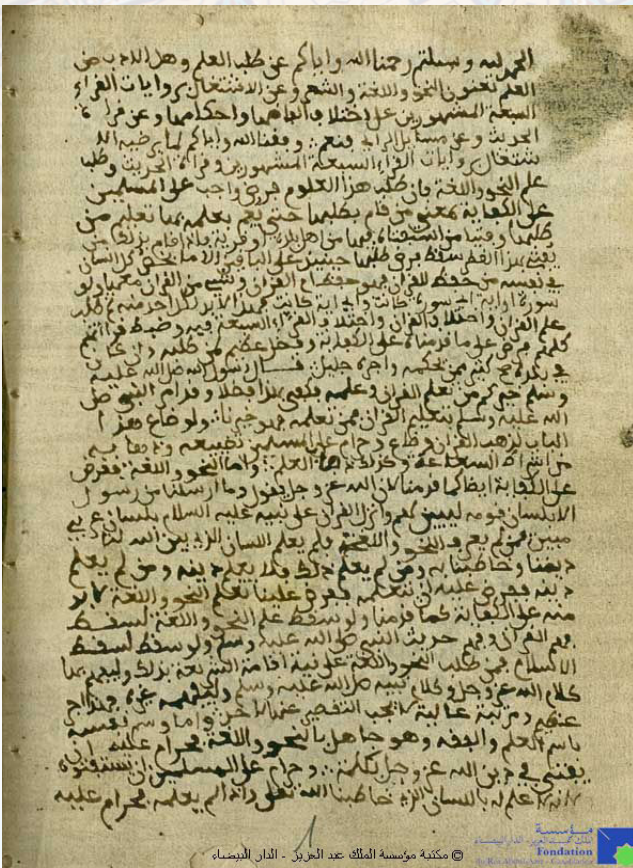 الحمد لله وسئلتم رحمنا الله واياكم عن طلب العلم وهل الادب من
العلم تعنون النحو واللغة والشعر وعن الاشتغال بروايات القراء
السبعة المشهورين على اختلاف الفاظها واحكامها وعن قراءة
الحديث وعن مسايل الراي فنعم وفقنا الله واياكم لما يرضيه الا
شتغال بروايات القراء السبعة المشهورين وقراءة الحديث وطلب
علم النحو واللغة فان طلب هذا العلوم فرض واجب على المسلمين
على الكفاية بمعنى من قام بطلبها حتى يعم بعلمه بما تعلم من
طلبها وفتيا من استفتاه فيها من اهل بلد او قرية فاذا قام بذلك من
يفي بهذا الفرض سقط فرض طلبها حينيذ على الباقين الا ما يخص كل انسان
في نفسه من حفظ للقران فهو حفظ ام القران وشيء من القران معها ولو
سورة اواية اي سورة كانت واي اية كانت فهذا لا بد لكل احد منه ثم طلب
علم القران واختلاف القران واختلاف القراء السبعة فيه وضبط قراءتهم
كلهم فرض على ما قدمناه على الكفاية وفضل عظيم لمن طلبه وان كان
في بلده كثير ممن يحكمه واجره جليل قال رسول الله صلى الله عليه
وسلم خيركم من تعلم القران وعلمه فكفى بهذا فضلا وقد امر النبي صلى
الله عليه وسلم بتعليم القران فمن تعلمه فهو خير نا ولو ضاع هذا
الباب لذهب القران وضاع وحرام على المسلمين تضييعه
من اشراط الساعة وكذلك ذهاب العلم واما النحو واللغة ففرض
على الكفاية ايضا كما قدمنا لان الله عز وجل يقول وما ارسلنا من رسول
الا بلسان قومه ليبين لهم وانزل القران على نبيه عليه السلام بلسان عربي
مبين فمن لم يعرف النحو واللغة فلم يعلم اللسان الذي بين الله لنا
ديننا وخاطبنا به ومن لم يعلم ذلك فلا يعلم دينه ومن لم يعلم
دينه ففرض عليه ان يتعلمه ففرض علينا تعلم النحو واللغة لا بد
منه على الكفاية كما قدمنا ولو سقط علم النحو واللغة لسقط
فهم القران وفهم حديث النبي صلى الله عليه وسلم ولو سقط لسقط
الاسلام فمن طلب النحو واللغة على نية اقامة الشريعة بذلك وليفهم بها
كلام الله عز وجل وكلام نبيه صلى الله عليه وسلم وليفهمه غيره فهذا اجر
عظيم ومرتبة عالية لا يجب التقصير عنها لاحد واما وسم نفسه
باسم العلم والفقه وهو جاهل بالنحو واللغة فحرام عليه ان
يفتي في دين الله عز وجل بكلمة وحرام على المسلمين ان يستفتوه
لانه لا علم له باللسان الذي خاطبنا الله تعلى واذا لم يعلمه فحرام عليه
1
© مكتبة مؤسسة الملك عبد العزيز - الدار البيضاء
مؤسسة
الملك عبد العزيز - الدار البيضاء
Fondation